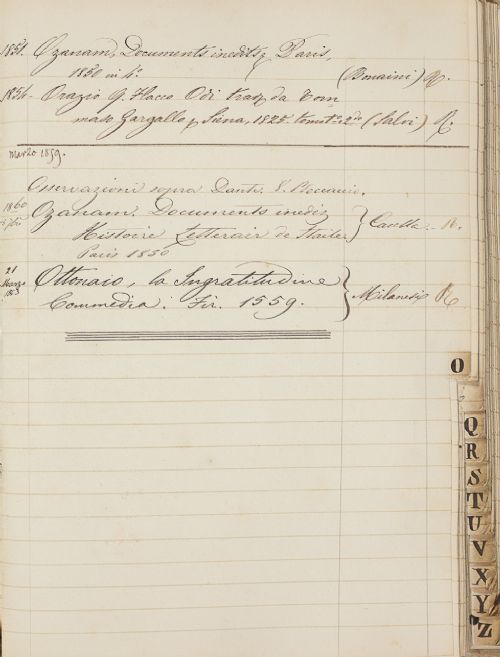 1851. Ozanam, Documents inedits, Paris,
1850 in 4.° (Bonaini) R.
1854. Orazio Q. Flacco Odi trad. da Tom-
maso Gargallo, Siena, 1825. tomo 2do (Salvi) R
Marzo 1859.
Osservazioni sopra Dante.
1860 Ozanam. Documents inedis
Histoire Letterair de Italie Casella R.
Paris 1850
21 Marzo 1863 Ottonaio, la Ingratitudine
Commedia. Fir. 1559. Milanesi R
O
Q
R
S
T
U
V
X
Y
Z